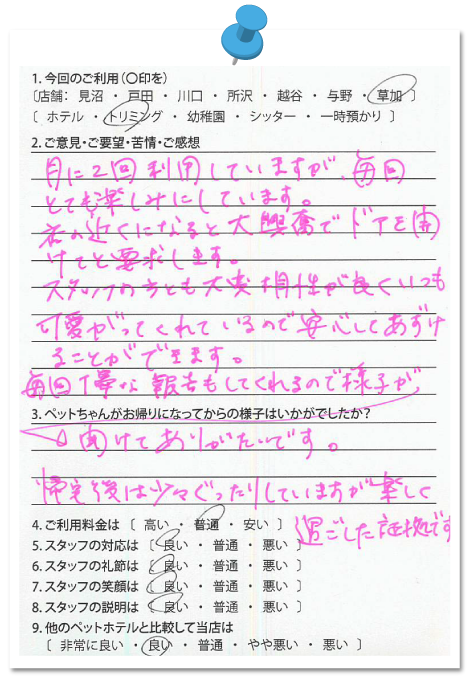 1. 今回のご利用(〇印を)
〔店舗： 見沼 ・ 戸田 ・ 川口 ・ 所沢 ・ 越谷 ・ 与野 ・ 草加 〕
〔 ホテル ・ トリミング ・ 幼稚園 ・ シッター ・ 一時預かり 〕
2. ご意見・ご要望・苦情・ご感想
月に2回利用していますが、毎回
とても楽しみにしています。
店の近くになると大興奮でドアを開
けてと要求します。
スタッフの方とも大変相性が良くいつも
可愛がってくれているので安心してあずけ
ることができます。
毎回丁寧な報告もしてくれるので様子が
3. ペットちゃんがお帰りになってからの様子はいかがでしたか？
聞けてありがたいです。
帰宅後は少々ぐったりしていますが楽しく
過ごした証拠です
4. ご利用料金は 〔 高い ・ 普通 ・ 安い 〕
5. スタッフの対応は 〔 良い ・ 普通 ・ 悪い 〕
6. スタッフの礼節は 〔 良い ・ 普通 ・ 悪い 〕
7. スタッフの笑顔は 〔 良い ・ 普通 ・ 悪い 〕
8. スタッフの説明は 〔 良い ・ 普通 ・ 悪い 〕
9. 他のペットホテルと比較して当店は
〔 非常に良い ・ 良い ・ 普通 ・ やや悪い ・ 悪い 〕